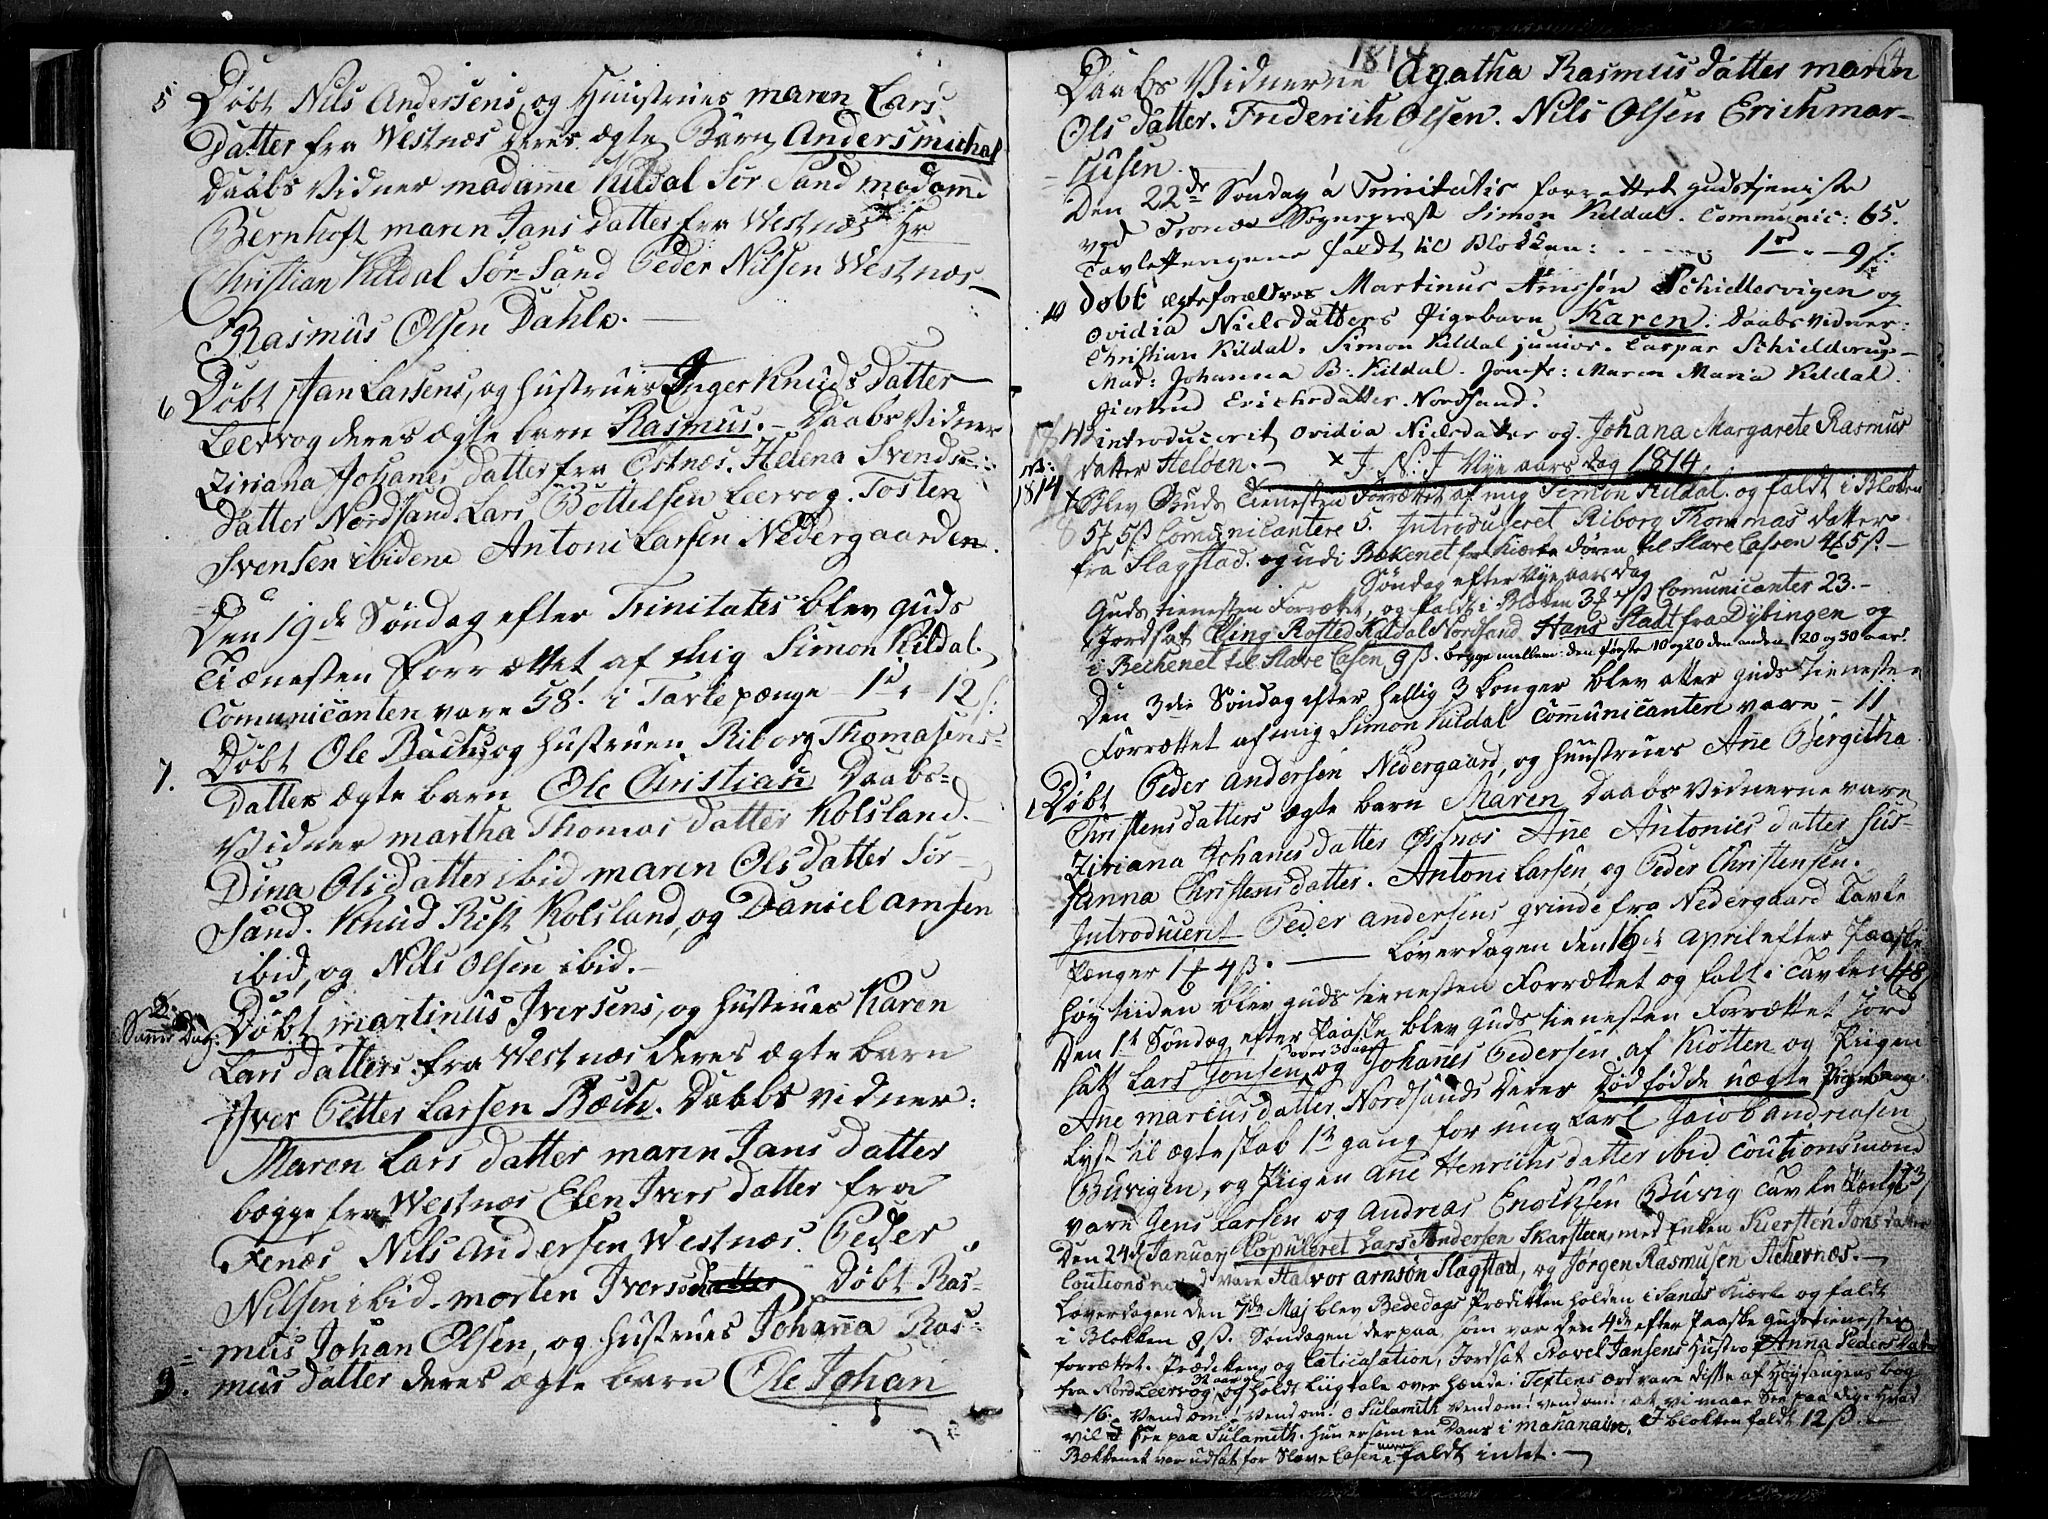 5 Døbt Nils Andersens, og Hustrues maren Lars
Datter fra Westnæs deres ægte Barn Anders michal
Daabs Vidner madamme Kildal Sør Sand madamme
Bernhoft maren Jans Datter fra Westnæs Hr
Christian Kildal Sør-Sand Peder Nilsen Westnæs
Rasmus Olsen Dahle.
6 Døbt Jan Larsens, og hustrues Inger Knuds Datter
Leervog deres ægte barn Rasmus. - Daabs Vidner
Ziriana Johanes datter fra Østnæs. Helena Svends
datter Nordsand. Lars Bottelsen Leervog. Tosten
Svensen ibidem Antoni Larsen Nedergaarden.
Den 19de Søndag efter Trinitates blev guds
Tiænesten Forrættet af mig Simon Kildal.
Comunicanten vare 58. i Tavle pænge 1 12
7. Døbt Ole Bachs og hustruen Riborg Thomasens
Datters ægte barn Ole Christian Daabs-
Vidner martha Thomas datter Kolsland.
Dina Ols datter ibid maren Ols datter Sør-
Sand. Knud Rist Kolsland, og Daniel arnsen
ibid, og Nils Olsen ibid.
Døbt martinus Iversens, og hustrues Karen
Lars datters. fra Westnæs deres ægte barn
Iver Petter Larsen Bæch. Daabs vidner:
Maren Lars datter maren Jans datter
begge fra Westnæs Elen Ivers datter fra
Fenæs Nils Andersen, Westnæs. Peder
Nilsen ibid. morten Iversen Døbt Ras-
mus Johan Olsen, og hustrues Johanna Ras-
9. mus datter deres ægte barn Ole Johan
1814
Daabs Vidnerne Agatha Rasmus datter maren
Ols datter. Friderich Olsen. Nils Olsen Erich mar-
cusen.
Den 22de Søndag á Trinitatis forrettet gudstjeniste
ved Sognepræst Simon Kildal. Communic: 65.
Tavlepengene faldt til Blokken: 1 - 9
10 Døbt ægteforældres Martinus Arnssøn Schiellesvigen og
Ovidia Nielsdatters Pigebarn Karen. Daabsvidner:
Christian Kildal. Simon Kildal junior. Caspar Schielderup
Mad: Johanna B: Kildal. Jomfr: Maren Maria Kildal.
Giertrud Erichsdatter Nordsand.
introducerit Ovidia Nielsdatter og Johana Margarete Rasmus
datter Heløen. - J. N. J Nye aars dag 1814
1814 Blev Guds Tienesten Forrættet af mig Simon Kildal. og faldt i Blokken
5 5ß Comunicantere 5. Introduseret Riborg Thommas datter
fra Slagstad. og udi Bekenet for Kirke døren til Slave Cassen 4 5ß
Søndag efter Nye aars dag
Guds tienesten Forrættet, og faldt i Blokken 3 ß Comunicanter 23.-
Jordsat Eling Rosted Kildal Nordsand. Hans Stadt fra Dybingen og
i Bechenet til Slave Casen 9ß. begge mellem: den første 10 og 20 den anden 20 og 30 aar!
Den 3die Søndag efter hellig 3 konger blev atter guds tieneste
Forrættet af mig Simon Kildal Communicanten vare - 11
1 Døbt Peder Andersen Nedergaard, og huustrues Ane Bergitha
Christens datters ægte barn Maren Daabs Vidnerne vare
Ziriana Johanes datter Østnæs Ane Antonies datter Sus-
sanna Christens datter. Antoni Larsen og Peder Christensen.
Introduceret Peder Andersens qvinde fra Nedergaard Tavle
Pænger 1 4ß. Løverdagen den 16de April efter Paaske
høy tiiden blev guds tienesten Forrættet og falt i Tavlen 48
Den 1ste Søndag efter Paaske blev guds tienesten Forrættet Jord
satt Lars Jonsen over 30 aar og Johanes Pedersen af Kiøtten og Piigen
Ane marcus datter Nordsands deres Dødfødde uægte Pigebarn
Lyst til ægteskab 1ste gang for ung karl Jacob andreasen
Buvigen, og Piigen Ane Henrichs datter ibid Coutionsmænd
vare Jens Larsen og Andreas Enochsen Buvig Tavle Penge 13
Den 24de January Copuleret Lars Andersen Skarsteen, med Enken Kiersten Jons datter
Coutionsmænd vare Halvor arnsøn Slagstad, og Jørgen Rasmusen Achernæs.
Løverdagen den 7de Maj blev Bededags Prædikken holden i Sands Kirke og faldt
i Blokken 8ß. Søndagen derpaa som var den 4de efter Paaske gudstienesten
forrættet. Prædiken og Caticasation, Jordsat Pavel Jansens Hustro Anna Peders Datter
fra Nord Leervog 32 aar og holdt Liigtale over hænde i Teksten ord vare disse af Høysangens bog
16. Vend om! Vend om! o Sulamith vend om! vend om! at vi maae See paa dig: Hvad
vil I see paa Sulamith. Hun er som en Dans i Mahanaim. I blokken faldt 12ß.
Bækkenet var udsat for Slave Casen men faldt intet.